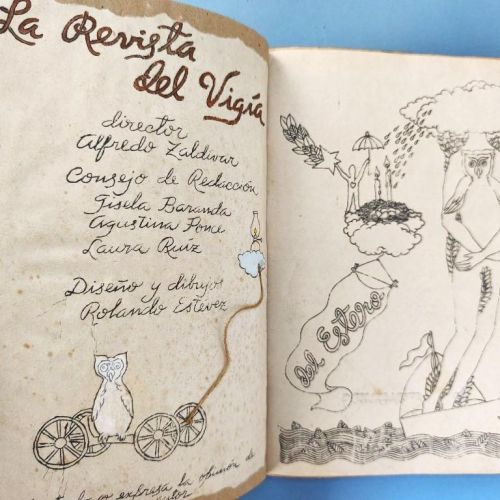 La Revista
del Vigía
director
Alfredo Zaldívar
Consejo de Redacción
Gisela Baranda
Agustina Ponce
Laura Ruíz
Diseño y dibujos
Rolando Estévez
expresa la opinión de
autor
del Estero